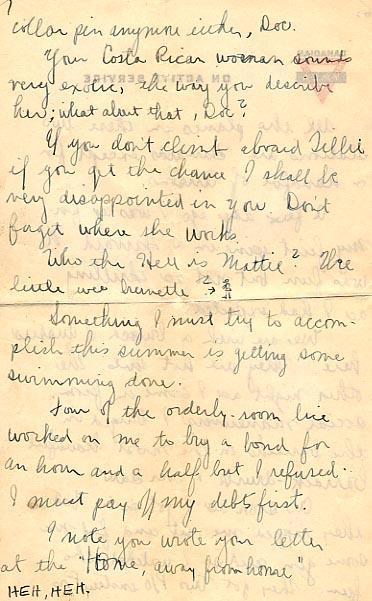 collar pin anymore either, Doc.
Your Costa Rican woman sounds
very exotic, the way you describe
her; what about that, Doc?
If you don't climb aboard Tillie
if you get the chance I shall be
very disappointed in you. Don't
forget where she works.
Who the Hell is Mattie? The
little wee brunette ?
Something I must try to accom-
plish this summer is getting some
swimming done.
Four of the orderly-room
worked on me to buy a bond for
an hour and a half but I refused.
I must pay off my debts first.
I note you wrote your letter
at the "Home, away from home"
HEH, HEH.